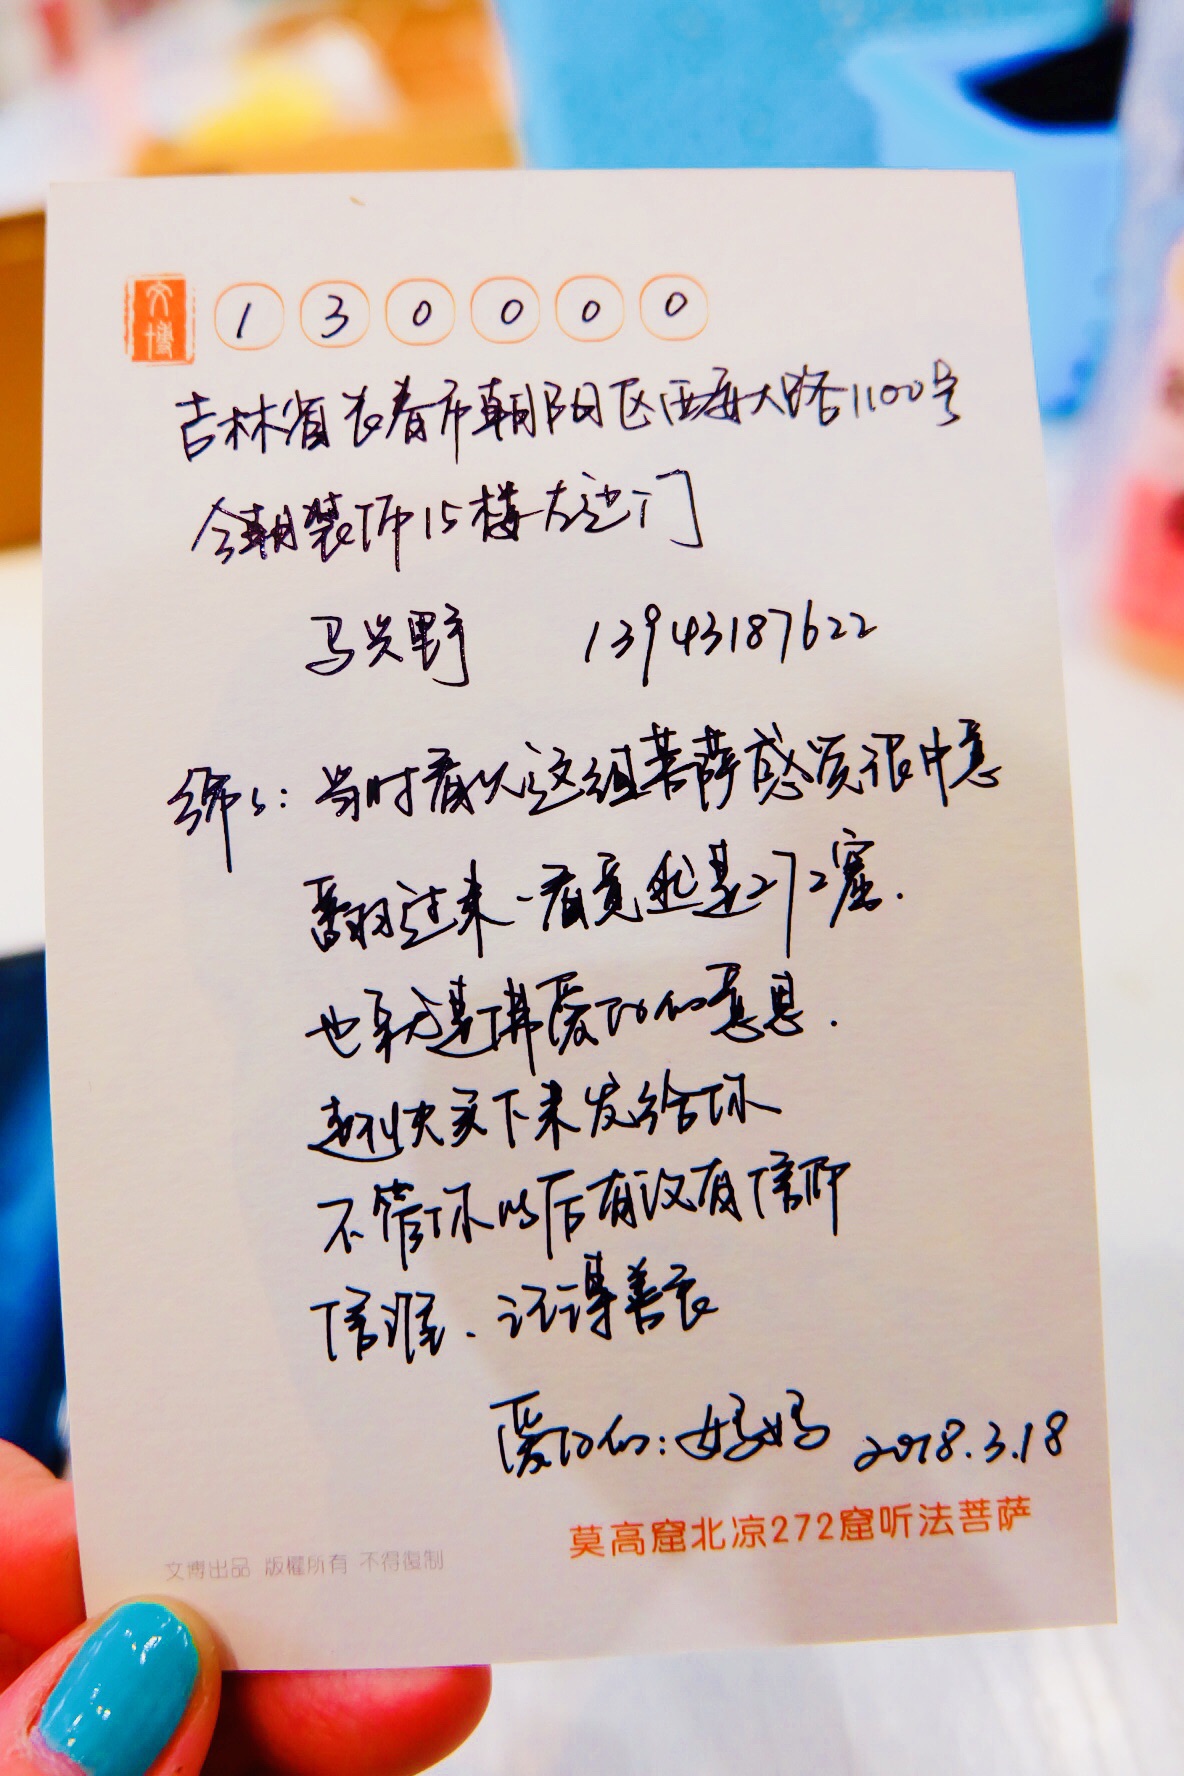 文博
130000
吉林省长春市朝阳区西安大路1100号
今朝装饰15楼左边门
马兴野 13943187622
当时看见这组菩萨感觉很中意
翻过来一看竟然是272窟.
也就是佛爱你的意思.
赶快买下来发给你
不管你以后有没有信仰
信谁、记得善良
爱你的:妈妈 2018.3.18
莫高窟北凉272窟听法菩萨
文博出品 版權所有 不得復制